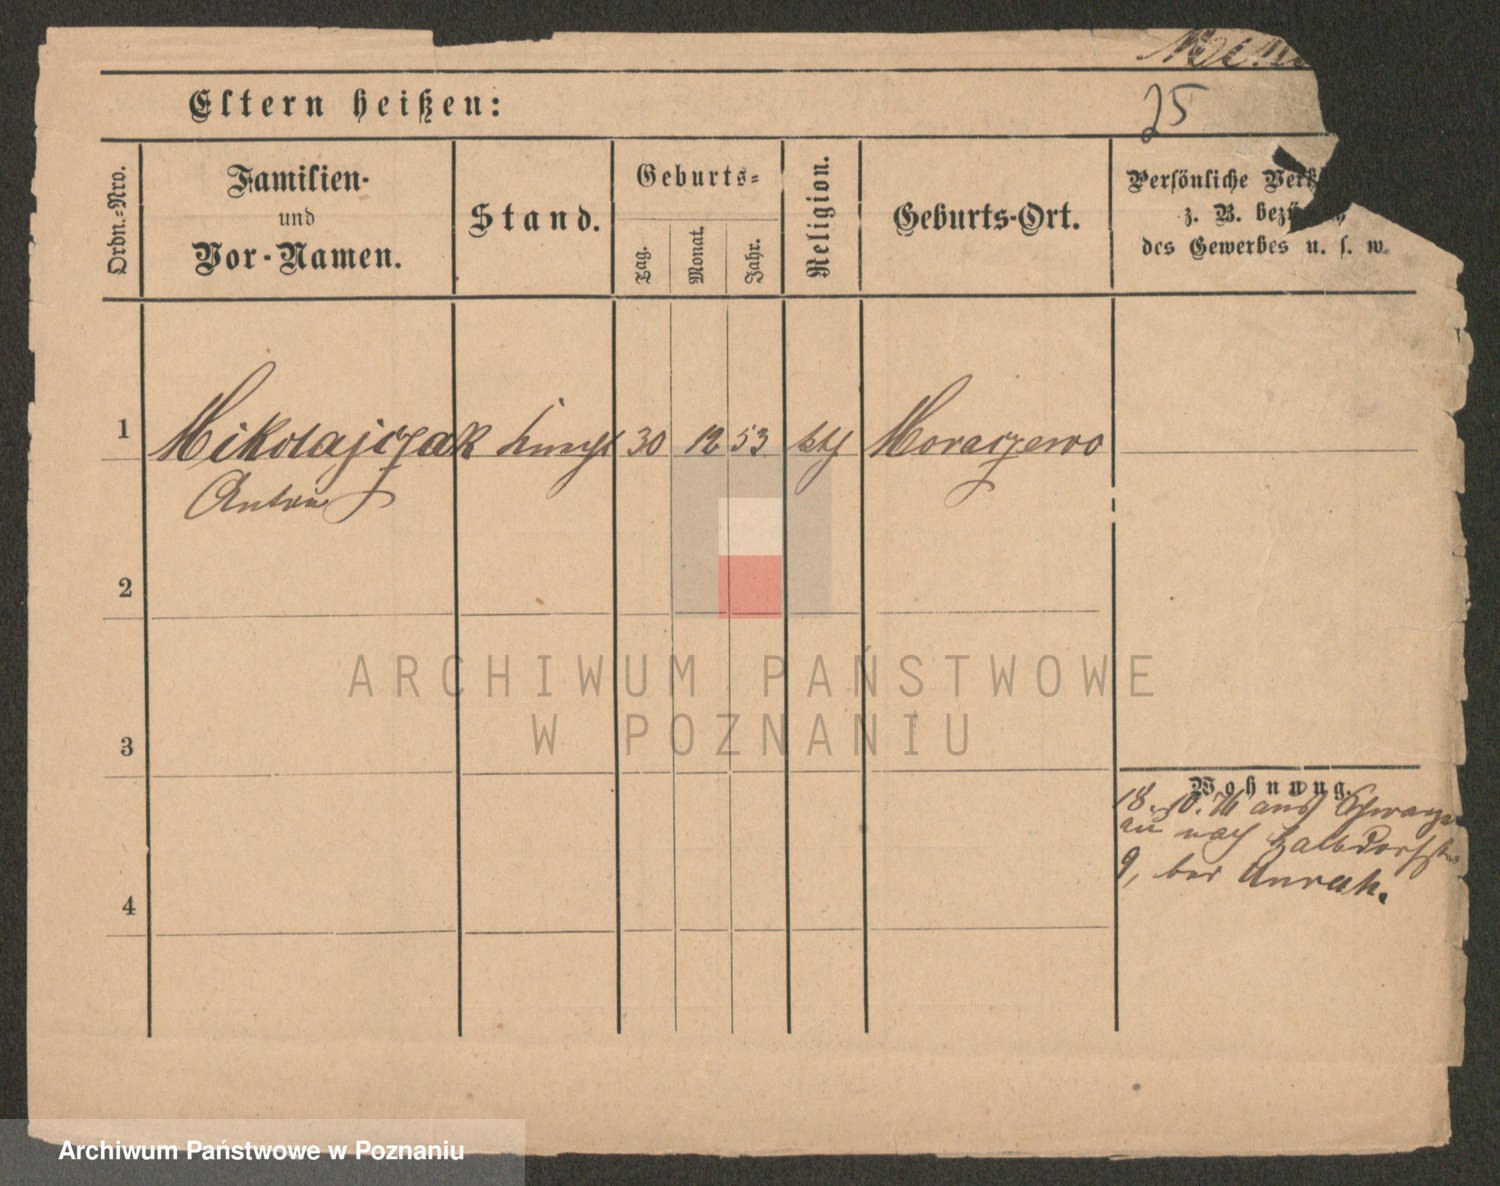 25
Eltern heißen:
Ordn.-Nro.
Familien-
und
Vor-Namen.
Stand.
Geburts-
Tag.
Monat.
Jahr.
Religion.
Geburts-Ort.
Persönliche
z. B.
des Gewerbes u. s. w.
1 Mikolajczak 30 12 53 kth Moraczewo
Anton
2
3
4
Wohnung.
18. 10. 76 aus
nach
9, bei
ARCHIWUM PAŃSTWOWE
W POZNANIU
Archiwum Państwowe w Poznaniu